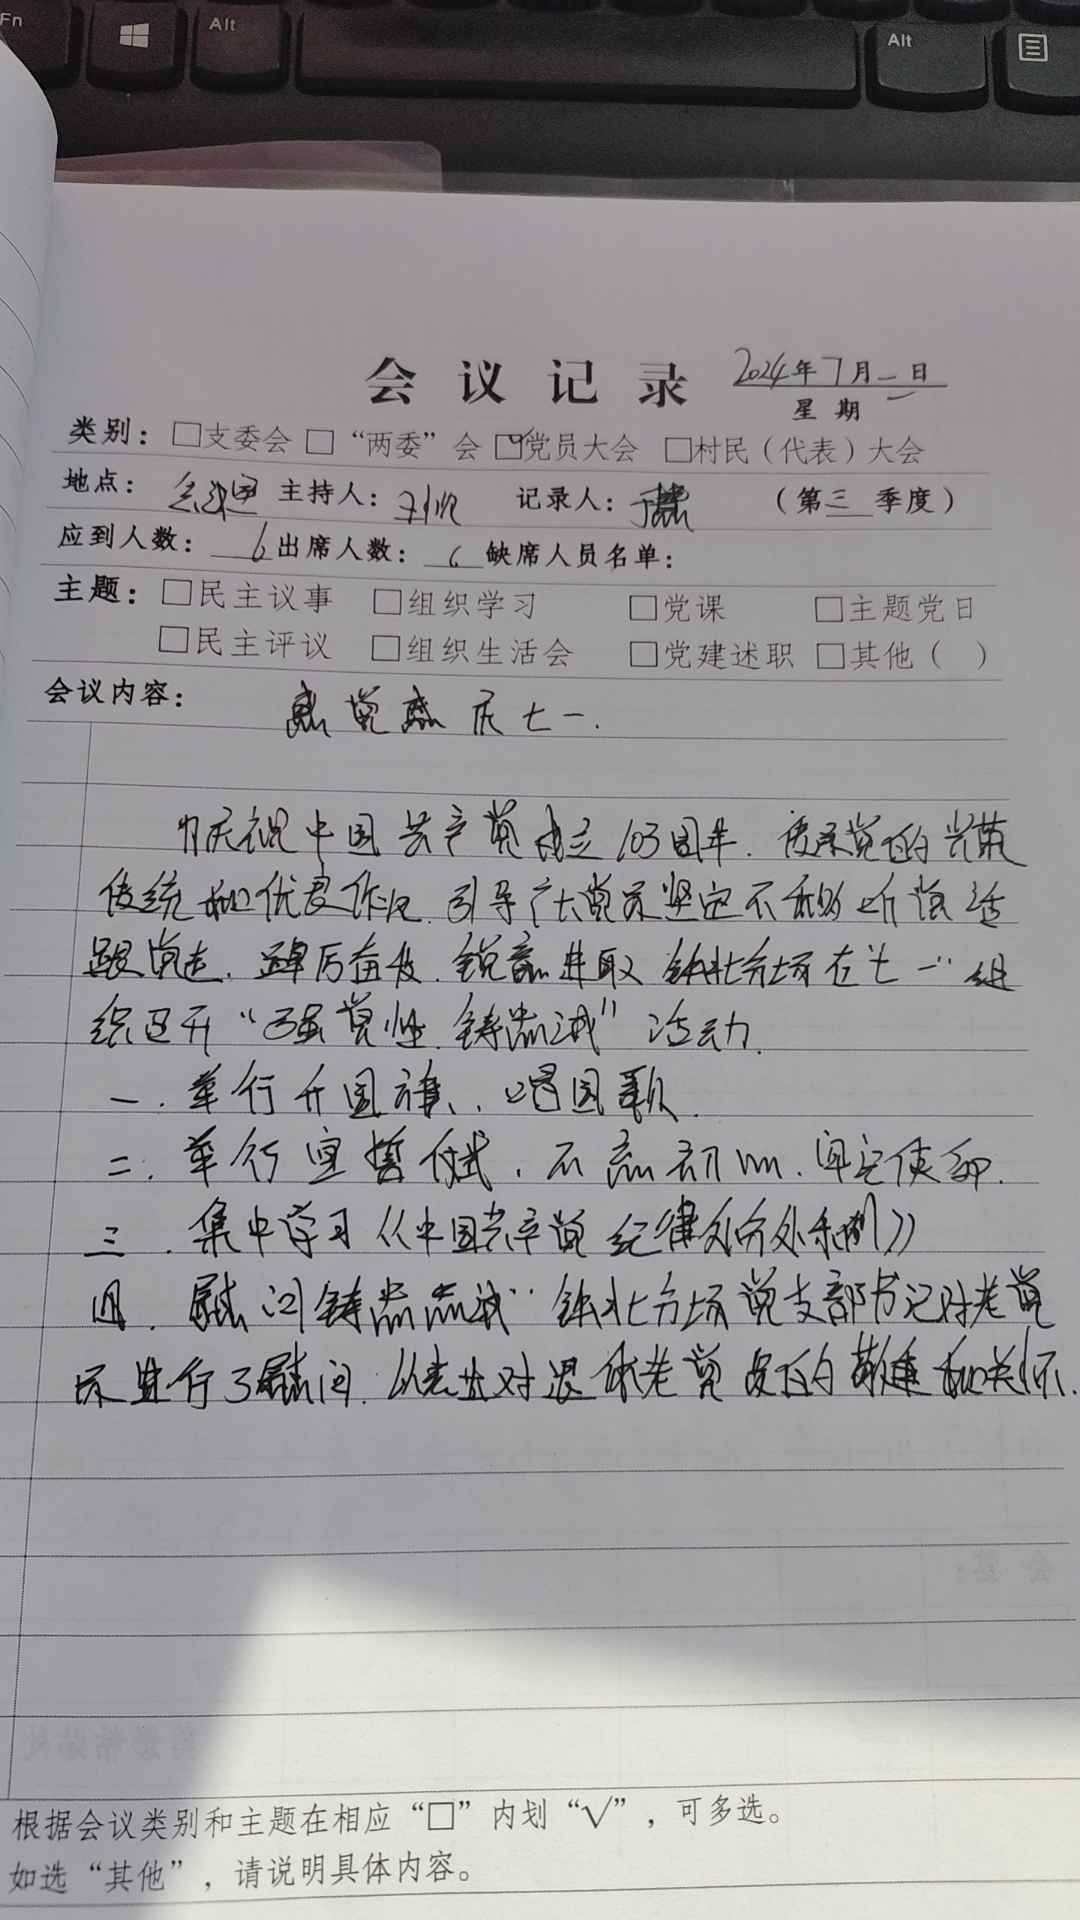 Fn
Alt
Alt
会议记录 2024年7月一日
星期一
类别：□支委会 □“两委”会 ☑党员大会 □村民（代表）大会
地点：会议室 主持人： 记录人： （第三季度）
应到人数：6 出席人数：6 缺席人员名单：
主题：□民主议事 □组织学习 □党课 □主题党日
□民主评议 □组织生活会 □党建述职 □其他（ ）
会议内容： 感党恩 庆七一.
为庆祝中国共产党成立103周年. 传承党的光荣
传统和优良作风. 引导广大党员坚定不移的听党话
跟党走. 踔厉奋发. 锐意进取 铁北分场在七一 组
织召开“强党性.铸忠诚”活动.
一. 举行升国旗、唱国歌.
二. 举行宣誓仪式. 不忘初心. 牢记使命.
三. 集中学习《中国共产党纪律处分条例》
四. 慰问铸忠诚 铁北分场党支部书记对老党
员进行了慰问. 以表达对退休老党员的敬重和关怀.
根据会议类别和主题在相应“□”内划“√”，可多选。
如选“其他”，请说明具体内容。